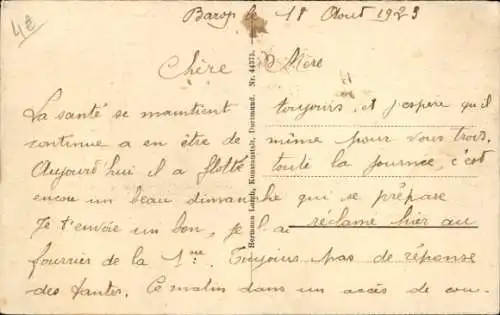 4e
Barop le 18 Aout 1923
Chère Mère
La santé se maintient toujours et j'espère qu'il
continue a en être de même pour vous trois.
Aujourd'hui il a flotté toute la journée, c'est
encou un beau dimanche qui se prépare
Je t'envoie un bon, je l'ai réclamé hier au
fourrier de la 1ère. Toujours pas de réponse
des tantes. Ce matin dans un accès de cou-
Hermann Lorch, Kunstanstalt, Dortmund. Nr. 44375.